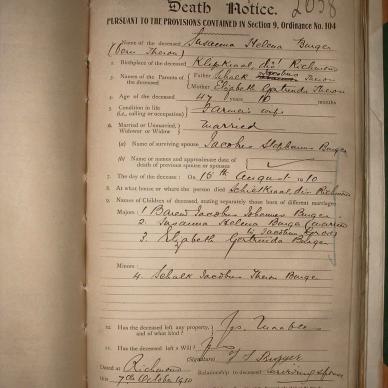 2038
Death Notice.
PURSUANT TO THE PROVISIONS CONTAINED IN Section 9, Ordinance No. 104
1. Name of the deceased Susanna Helena Burger
(born Theron)
2. Birthplace of the deceased Klipkraal, div Richmond
3. Names of the Parents of the deceased Father Schalk Jacobus Theron
Mother Elizabeth Gertruida Theron
4. Age of the deceased 47 years 10 months
5. Condition in life (i.e., calling or occupation) Farmer's wife
6. Married or Unmarried, Widower or Widow married
(a) Name of surviving spouse Jacobus Stephanus Burger
(b) Name or names and approximate date of death of previous spouse or spouses
7. The day of the decease: On 15th August 1910
8. At what house or where the person died Schietkraal, div Richmond
9. Names of Children of deceased, stating separately those born of different marriages
Majors: 1 Barend Jacobus Johannes Burger
2. Susanna Helena Burger (married
to Jacobus
3. Elizabeth Gertruida Burger
Minors:
4. Schalk Jacobus Theron Burger
10. Has the deceased left any property, and of what kind? Yes. Movable
11. Has the deceased left a Will? Yes
(Signature) Burger
Dated at Richmond Relationship to deceased surviving spouse
this 7th October 1910